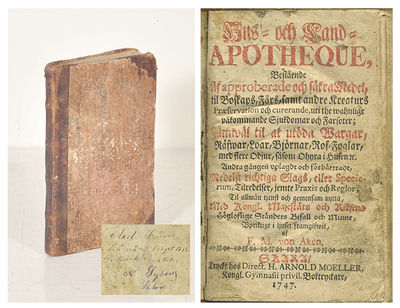 Hus- och Land-
APOTHEQUE,
Bestående
Af approberade och säkra Medel,
til Boskaps, Fårs, samt andre Kreaturs
Præservation och curerande, uti the wahnligt
påkommande Sjukdomar och Farsoter;
Jemwäl til at utöda Wargar,
Räfwar, Loar, Björnar, Rof-Foglar,
med flere Odjur, såsom Ohyra i Husen &c.
Andra gången uplagdt och förbättradt,
Medelst richtiga Slags, eller Specie-
rum, Tilredelser, jemte Praxis och Reglor,
Til allmän tjenst och gemensam nytta,
Med Kongl. Majestäts och Riksens
Högloflige Ständers Bifall och Minne,
Ypperligt i ljuset framgifwit,
af
F. M. von Aken.
SKARA,
Tryckt hos Direct. H. ARNOLD MOELLER,
Kongl. Gymnasii privil. Boktryckare,
1747.
Axel